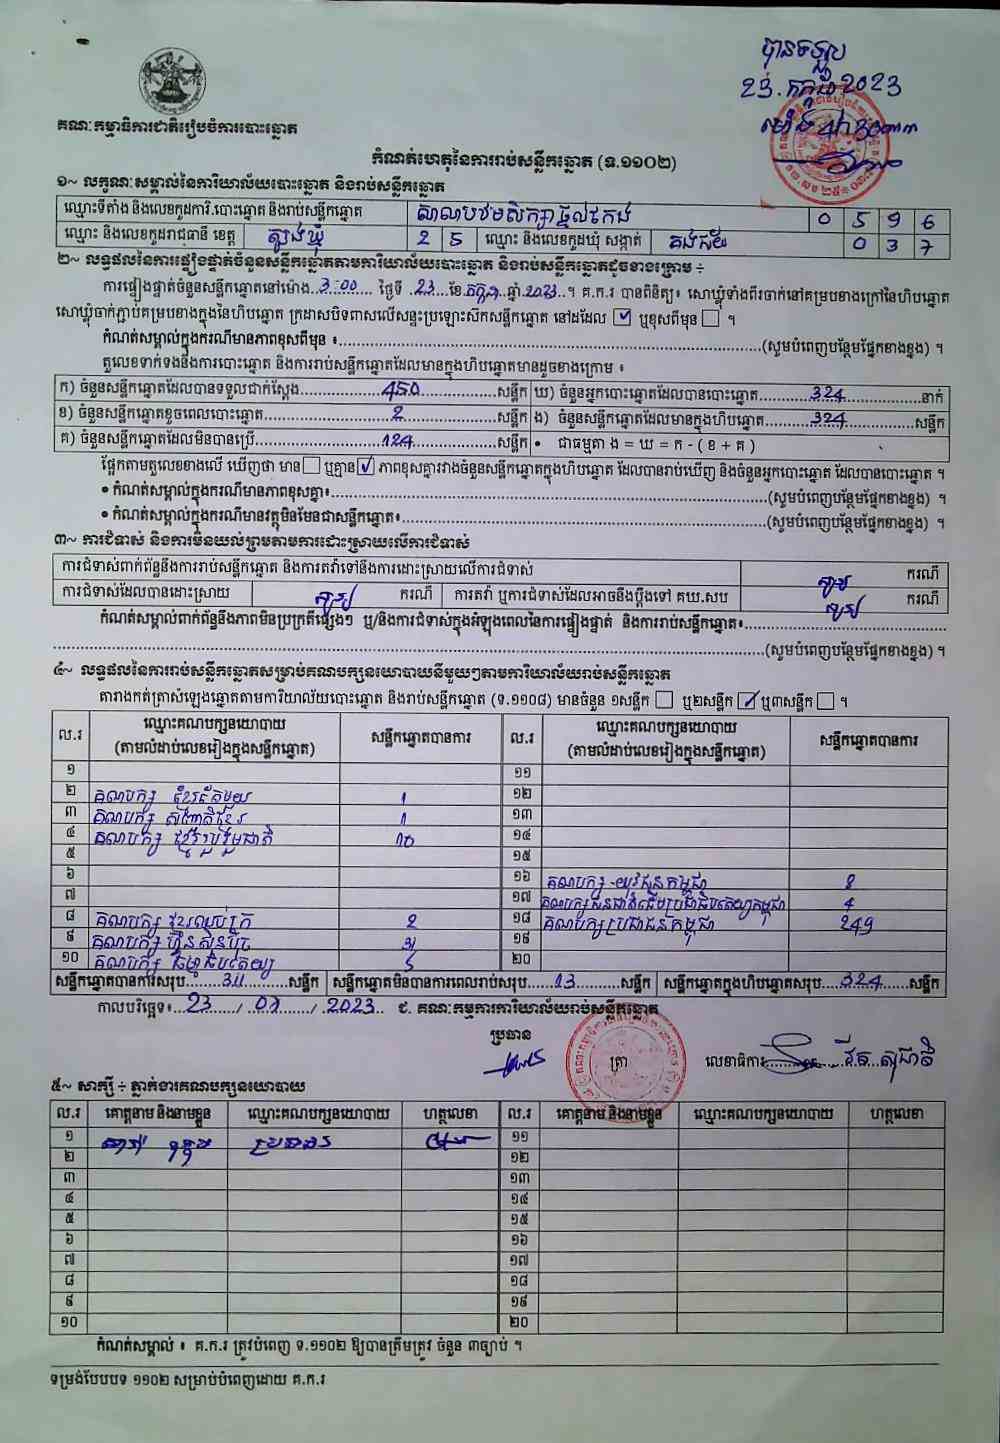 បានទទួល
23.កក្កដា 2023
គណៈកម្មាធិការជាតិរៀបចំការបោះឆ្នោត
កំណត់ហេតុនៃការរាប់សន្លឹកឆ្នោត (ទ.១១០២)
១~ លក្ខណៈសម្គាល់នៃការិយាល័យបោះឆ្នោត និងរាប់សន្លឹកឆ្នោត
ឈ្មោះទីតាំង និងលេខកូដការិ.បោះឆ្នោត និងរាប់សន្លឹកឆ្នោត សាលាបឋមសិក្សាធ្នល់កែង 0 5 9 6
ឈ្មោះ និងលេខកូដរាជធានី ខេត្ត ត្បូងឃ្មុំ 2 5 ឈ្មោះ និងលេខកូដឃុំ សង្កាត់ គងជ័យ 0 3 7
២~ លទ្ធផលនៃការផ្ទៀងផ្ទាត់ចំនួនសន្លឹកឆ្នោតតាមការិយាល័យបោះឆ្នោត និងរាប់សន្លឹកឆ្នោតដូចខាងក្រោម ÷
ការផ្ទៀងផ្ទាត់ចំនួនសន្លឹកឆ្នោតនៅម៉ោង 3:00 ថ្ងៃទី 23 ខែ កក្កដា ឆ្នាំ 2023 ។ គ.ក.រ បានពិនិត្យ៖ សោឃ្លុំទាំងពីរចាក់នៅគម្របខាងក្រៅនៃហិបឆ្នោត
សោឃ្លុំចាក់ភ្ជាប់គម្របខាងក្នុងនៃហិបឆ្នោត ក្រដាសបិទពាសលើសន្ទះប្រឡោះសីកសន្លឹកឆ្នោត នៅដដែល ☑ ឬខុសពីមុន ☐ ។
កំណត់សម្គាល់ក្នុងករណីមានភាពខុសពីមុន ៖ (សូមបំពេញបន្ថែមផ្នែកខាងខ្នង) ។
តួលេខទាក់ទងនឹងការបោះឆ្នោត និងការរាប់សន្លឹកឆ្នោតដែលមានក្នុងហិបឆ្នោតមានដូចខាងក្រោម ៖
ក) ចំនួនសន្លឹកឆ្នោតដែលបានទទួលជាក់ស្ដែង 450 សន្លឹក ឃ) ចំនួនអ្នកបោះឆ្នោតដែលបានបោះឆ្នោត 324 នាក់
ខ) ចំនួនសន្លឹកឆ្នោតខូចពេលបោះឆ្នោត 2 សន្លឹក ង) ចំនួនសន្លឹកឆ្នោតដែលមានក្នុងហិបឆ្នោត 324 សន្លឹក
គ) ចំនួនសន្លឹកឆ្នោតដែលមិនបានប្រើ 124 សន្លឹក • ជាធម្មតា ង = ឃ = ក - ( ខ + គ )
ផ្អែកតាមតួលេខខាងលើ ឃើញថា មាន ☐ ឬគ្មាន ☑ ភាពខុសគ្នារវាងចំនួនសន្លឹកឆ្នោតក្នុងហិបឆ្នោត ដែលបានរាប់ឃើញ និងចំនួនអ្នកបោះឆ្នោត ដែលបានបោះឆ្នោត ។
• កំណត់សម្គាល់ក្នុងករណីមានភាពខុសគ្នា៖ (សូមបំពេញបន្ថែមផ្នែកខាងខ្នង) ។
• កំណត់សម្គាល់ក្នុងករណីមានវត្ថុមិនមែនជាសន្លឹកឆ្នោត៖ (សូមបំពេញបន្ថែមផ្នែកខាងខ្នង) ។
៣~ ការជំទាស់ និងការមិនយល់ព្រមតាមការដោះស្រាយលើការជំទាស់
ការជំទាស់ពាក់ព័ន្ធនឹងការរាប់សន្លឹកឆ្នោត និងការតវ៉ាទៅនឹងការដោះស្រាយលើការជំទាស់ សូន្យ ករណី
ការជំទាស់ដែលបានដោះស្រាយ សូន្យ ករណី ការតវ៉ា ឬការជំទាស់ដែលអាចនឹងប្ដឹងទៅ គឃ.សប សូន្យ ករណី
កំណត់សម្គាល់ពាក់ព័ន្ធនឹងភាពមិនប្រក្រតីផ្សេងៗ ឬ/និងការជំទាស់ក្នុងអំឡុងពេលនៃការផ្ទៀងផ្ទាត់ និងការរាប់សន្លឹកឆ្នោត៖
(សូមបំពេញបន្ថែមផ្នែកខាងខ្នង) ។
៤~ លទ្ធផលនៃការរាប់សន្លឹកឆ្នោតសម្រាប់គណបក្សនយោបាយនីមួយៗតាមការិយាល័យរាប់សន្លឹកឆ្នោត
តារាងកត់ត្រាសំឡេងឆ្នោតតាមការិយាល័យបោះឆ្នោត និងរាប់សន្លឹកឆ្នោត (ទ.១១០៨) មានចំនួន ១សន្លឹក ☐ ឬ២សន្លឹក ☑ ឬ៣សន្លឹក ☐ ។
ល.រ ឈ្មោះគណបក្សនយោបាយ (តាមលំដាប់លេខរៀងក្នុងសន្លឹកឆ្នោត) សន្លឹកឆ្នោតបានការ ល.រ ឈ្មោះគណបក្សនយោបាយ (តាមលំដាប់លេខរៀងក្នុងសន្លឹកឆ្នោត) សន្លឹកឆ្នោតបានការ
១ ១១
២ គណបក្ស ខ្មែរតែមួយ 1 ១២
៣ គណបក្ស សញ្ជាតិខ្មែរ 1 ១៣
៤ គណបក្ស ខ្មែររួបរួមជាតិ 10 ១៤
៥ ១៥
៦ ១៦ គណបក្ស យុវជនកម្ពុជា 8
៧ ១៧ គណបក្សជនជាតិដើមប្រជាធិបតេយ្យកម្ពុជា 4
៨ គណបក្ស 2 ១៨ គណបក្សប្រជាជនកម្ពុជា 249
៩ គណបក្ស ហ៊្វុនស៊ិនប៉ិច ១៩
១០ គណបក្ស ធម្មាធិបតេយ្យ 5 ២០
សន្លឹកឆ្នោតបានការសរុប 311 សន្លឹក សន្លឹកឆ្នោតមិនបានការពេលរាប់សរុប 13 សន្លឹក សន្លឹកឆ្នោតក្នុងហិបឆ្នោតសរុប 324 សន្លឹក
កាលបរិច្ឆេទ៖ 23 / 07 / 2023 ជ. គណៈកម្មការការិយាល័យរាប់សន្លឹកឆ្នោត
ប្រធាន
ត្រា លេខាធិការ
៥~ សាក្សី ÷ ភ្នាក់ងារគណបក្សនយោបាយ
ល.រ គោត្តនាម និងនាមខ្លួន ឈ្មោះគណបក្សនយោបាយ ហត្ថលេខា ល.រ គោត្តនាម និងនាមខ្លួន ឈ្មោះគណបក្សនយោបាយ ហត្ថលេខា
១ ប្រជាជន ១១
២ ១២
៣ ១៣
៤ ១៤
៥ ១៥
៦ ១៦
៧ ១៧
៨ ១៨
៩ ១៩
១០ ២០
កំណត់សម្គាល់ ៖ គ.ក.រ ត្រូវបំពេញ ទ.១១០២ ឱ្យបានត្រឹមត្រូវ ចំនួន ៣ច្បាប់ ។
ទម្រង់បែបបទ ១១០២ សម្រាប់បំពេញដោយ គ.ក.រ